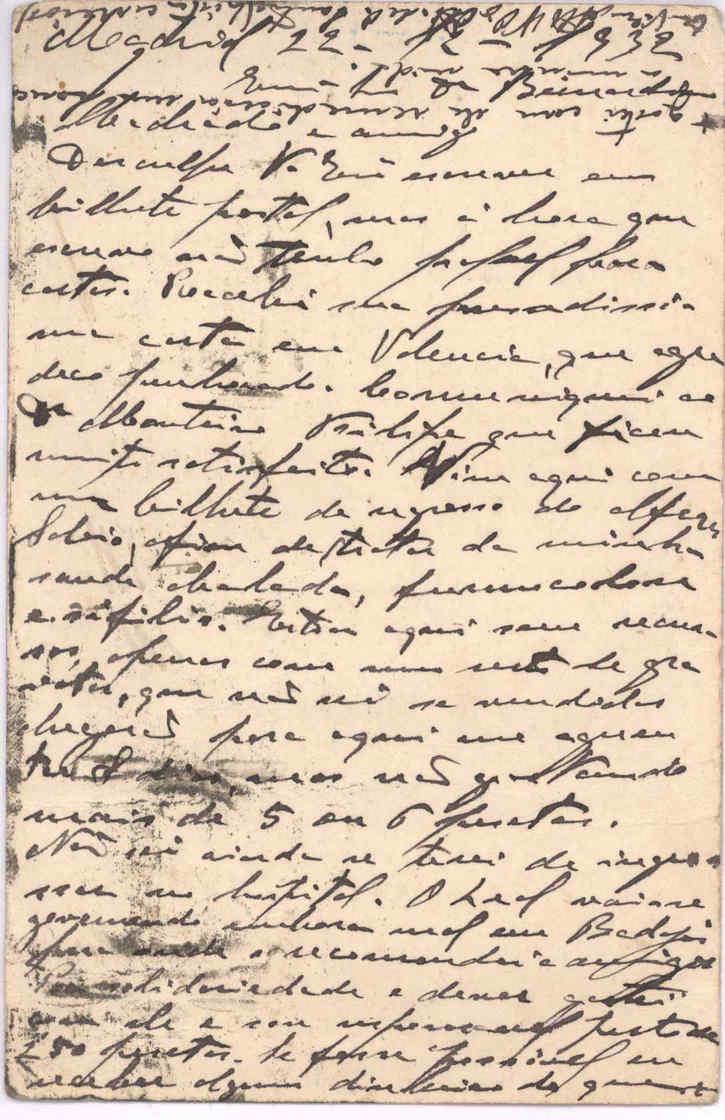 Madrid 22-12-1932
Exmo Sr Dr Bernardino
Machado e amigo
Desculpe V. Exia escrever em
bilhete postal, mas á hora que
escrevo não tenho papel para
cartas. Recebi sua presadissi-
ma carta em Valencia, que agra
deço penhorado. Comuniquei ao
Dr Monteiro Filipe que ficou
muito satisfeito. Vim aqui com
um bilhete de regresso do alferes
afim de tratar da minha
saude abalada, furunculose
e sifilis. Estou aqui sem recur-
sos, apenas com um resto de gra
vatas, que não sei se vendidas
chegarão para aqui me aguen
tar 8 dias, mas não gastando
mais de 5 ou 6 pesetas.
Não sei ainda se terei de ingres
sar no hospital. O Leal vai-se
governando embora mal em Badajoz
para onde o recomendei a amigos
Por solidariedade e dever gastei
com ele e sou responsavel perto de
250 pesetas. Se fosse possivel eu
receber algum dinheiro do que